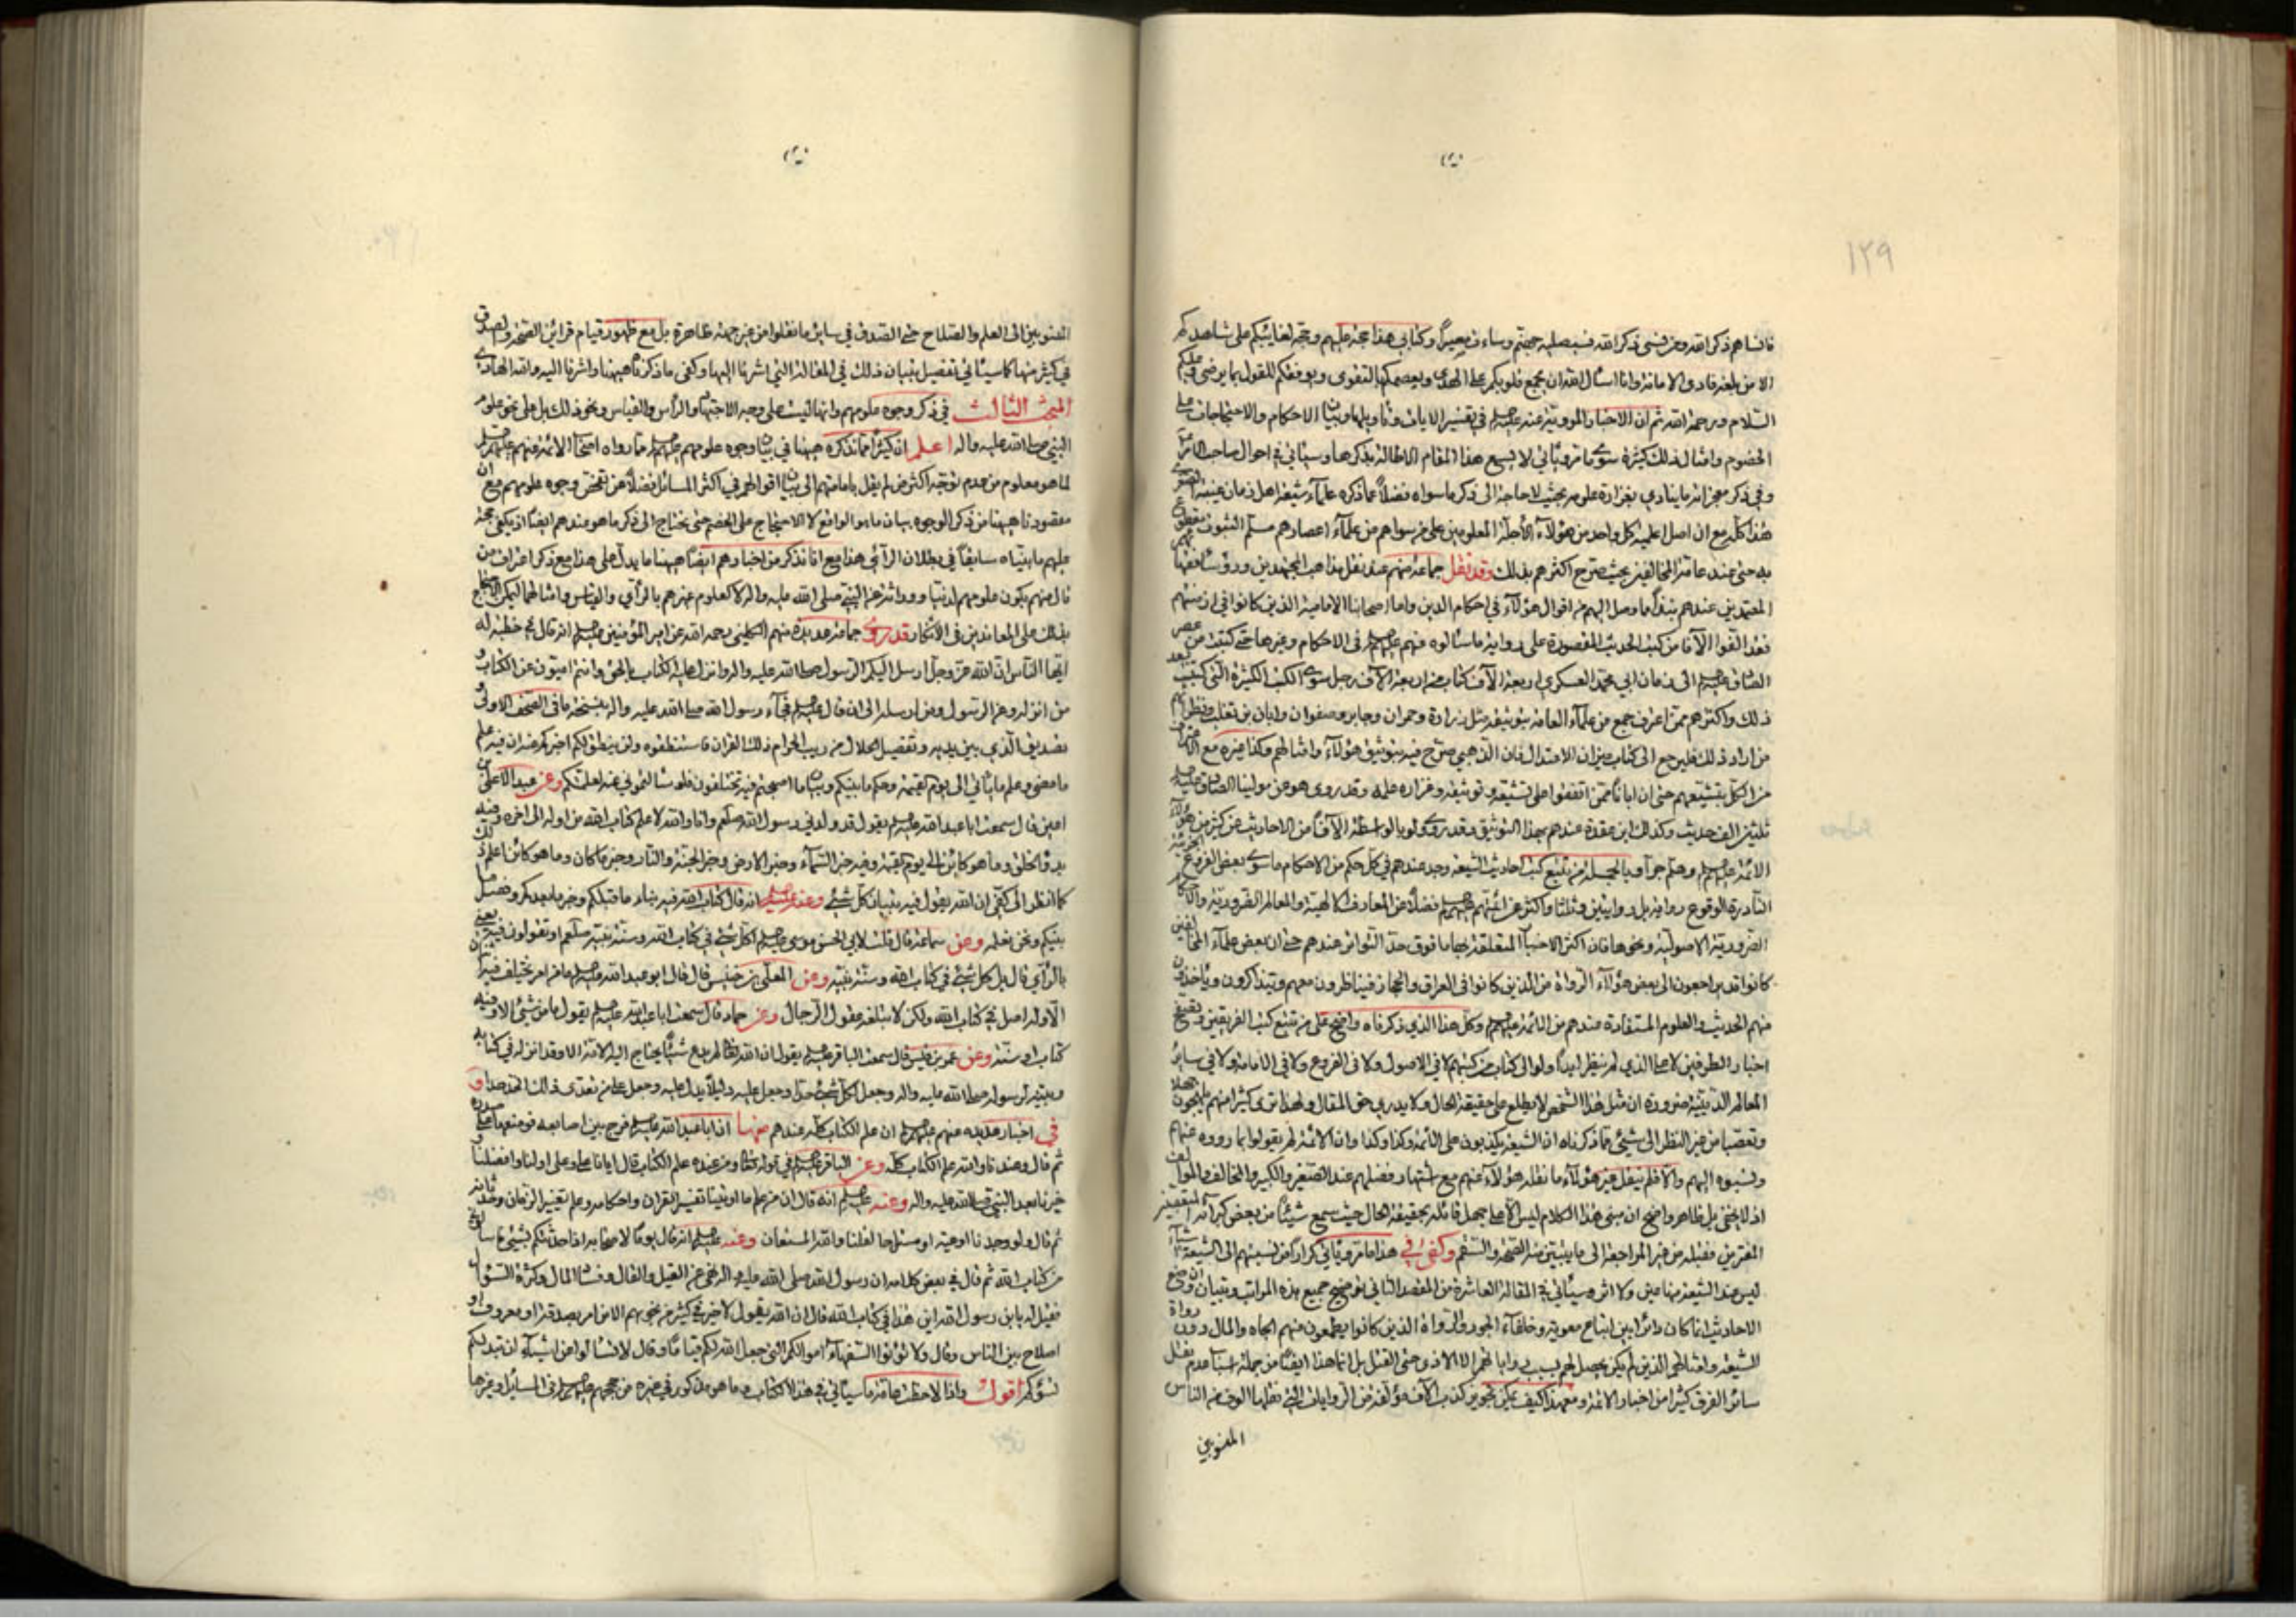 ١٢٩
فانساهم ذكر الله ومن نسى ذكر الله فسيصليه جهنم وساءت مصيراً وكتابى هذا حجة عليهم وحجة لغائبكم على شاهدكم
الا من بلغه فادى الامانة وانا اسأل الله ان يجمع قلوبكم على الهدى ويعصمكم بالتقوى ويوفقكم للقول بما يرضى وعليكم
السلام ورحمة الله ثم ان الاخبار المروية عنه عليه السلم فى تفسير الايات وتأويلها وبيان الاحكام والاحتجاجات على
الخصوم وامثال ذلك كثيرة سوى ما مر ويأتى لا يسع هذا المقام الاطالة بذكرها وسيأتى فى احوال صاحب
وفى ذكر معجزاته ما ينادى بغزارة علومه بحيث لا حاجة الى ذكر ما سواه فضلاً عما ذكره علماء شيعة اهل زمان غيبته
هذا كله مع ان اصل اعلمية كل واحد من هؤلاء الأجلة المعلومين على من سواهم من علماء اعصارهم مسلم الثبوت مقطوع
به حتى عند عامة المخالفين بحيث صرح اكثرهم بذلك وقد نقل جماعة منهم عند نقل مذاهب المجتهدين
المعتمدين عندهم نبذاً مما وصل اليهم من اقوال هؤلاء فى احكام الدين واما اصحابنا الامامية الذين كانوا فى ازمنتهم
فقد الفوا الآفا من كتب الحديث المقصورة على رواية ما سألوه منهم عليهم السلم فى الاحكام وغيرها حتى كتبت من عصر
الصادق عليه السلم الى زمان ابى محمد العسكرى اربعة الآف كتاب من اربعة الآف رجل سوى الكتب الكثيرة التى كتبت بعد
ذلك واكثرهم ممن اعترف جمع من علماء العامة بتوثيقه مثل زرارة وحمران وجابر وصفوان وابان بن تغلب ونظرائهم
من اراد ذلك فليرجع الى كتاب ميزان الاعتدال فان الذهبى صرح فيه بتوثيق هؤلاء وامثالهم وكذا غيره مع
من الكل بتشيعهم حتى ان اباناً ممن اتفقوا على تشيعه وتوثيقه وغزارة علمه وقد روى هو عن مولينا الصادق عليه السلم
ثلثين الف حديث وكذلك ابن عقدة عندهم بهذا التوثيق وقد روى ولو بالواسطة الآفاً من الاحاديث عن كثير من هؤلاء
الائمة عليهم السلم وهلم جراً وبالجملة من تتبع كتب احاديث الشيعة وجد عندهم فى كل حكم من الاحكام ما سوى بعض الفروع
النادرة الوقوع رواية بل روايتين وثلثا واكثر عن ائمتهم عليهم السلم فضلاً عن المعارف الالهية والمعالم الضرورية والاحكام
الضرورية الاصولية ونحوها فان اكثر الاخبار المتعلقة بها ما فوق حد التواتر عندهم حتى ان بعض علماء المخالفين
كانوا قد يراجعون الى بعض هؤلاء الرواة من الذين كانوا فى العراق والحجاز فيناظرون معهم ويتذاكرون ويأخذون
منهم الحديث والعلوم المستفادة عندهم من الائمة عليهم السلم وكل هذا الذى ذكرناه واضح على من تتبع كتب الفريقين وتصفح
اخبار الطرفين لا على الذى لم ينظر ابداً ولو الى كتاب من كتبهم لا فى الاصول ولا فى الفروع ولا فى الامامة ولا فى سائر
المعالم الدينية ضرورة ان مثل هذا الشخص لا يطلع على حقيقة الحال ولا يدرى حق المقال ولهذا ترى كثيراً منهم
وتعصبا من غير النظر الى شىء مما ذكرناه ان الشيعة يكذبون على الائمة وكذا وكذا وان الائمة لم يقولوا بما رووه عنهم
ونسبوه اليهم والا فلم ينقل غير هؤلاء ما نقله هؤلاء عنهم مع اشتهار فضلهم عند الصغير والكبير والمخالف والموالف
اذ لا يخفى بل ظاهر واضح ان مبنى هذا الكلام ليس الا على جهل قائله بحقيقة الحال حيث سمع شيئاً من بعض كبرائه المتعصبين
المفترين فقبله من غير المراجعة الى ما يتبين منه الصحة والسقم وكفى فى هذا ما مر ويأتى كراراً من نسبتهم الى الشيعة اشياء
ليس عند الشيعة منها عين ولا اثر وسيأتى فى المقالة العاشرة من المقصد الثانى توضيح جميع هذه المراتب وتبيان ان وضع
الاحاديث انما كان دائرا بين اتباع معوية وخلفاء الجور والرواة الذين كانوا يطمعون منهم الجاه والمال دون رواة
الشيعة وامثالهم الذين لم يكن يحصل لهم بسبب رواياتهم الا الاذى حتى القتل بل انما هذا ايضاً من جملة اسباب عدم نقل
سائر الفرق كثيرا من اخبار الائمة ومع هذا كيف يمكن تجويز كذب الآف مؤلفة من الروايات التى نقلها الوف من الناس
المنسوبين
المنسوبين الى العلم والصلاح حتى الصدق فى ساير ما نقلوا من غير جهة ظاهرة بل مع ظهور قيام قرائن الصحة والصدق
فى كثير منها كما سيأتى تفصيل تبيان ذلك فى المقالة التى اشرنا اليها وكفى ما ذكرناه هيهنا واشرنا اليه والله الهادى
المبحث الثالث فى ذكر وجوه علومهم وانها ليست على وجه الاجتهاد والرأى والقياس ونحو ذلك بل على نحو علوم
النبى صلى الله عليه واله اعلم ان كثيراً مما نذكره هيهنا فى بيان وجوه علومهم عليهم السلم مما رواه اصحاب الائمة عنهم عليهم السلم
لما هو معلوم من عدم توجه اكثر من لم يقل بامامتهم الى بيان اقوالهم فى اكثر المسائل فضلاً عن تفحص وجوه علومهم مع ان
مقصودنا هيهنا من ذكر الوجوه بيان ما هو الواقع لا الاحتجاج على الخصم حتى يحتاج الى ذكر ما هو عندهم ايضاً اذ يكفى حجة
عليهم ما بيناه سابقاً فى بطلان الرأى هذا مع انا نذكر من اخبارهم ايضاً هيهنا ما يدل على هذا مع ذكر اعتراف من
قال منهم بكون علومهم لدنيا ووراثة من النبى صلى الله عليه واله لا كعلوم غيرهم بالرأى والقياس وامثالهما ليكن
بذلك على المعاندين فى الانكار قد روى جماعة عديدة منهم الكلينى رحمه الله عن امير المؤمنين عليه السلم انه قال فى خطبة له
ايها الناس ان الله عز وجل ارسل اليكم الرسول صلى الله عليه واله وانزل عليه الكتاب بالحق وانتم اميون عن الكتاب و
من انزله وعن الرسول ومن ارسله الى ان قال عليه السلم فجاء رسول الله صلى الله عليه واله بنسخة ما فى الصحف الاولى و
تصديق الذى بين يديه وتفصيل الحلال من ريب الحرام ذلك القران فاستنطقوه ولن ينطق لكم اخبركم عنه ان فيه علم
ما مضى وعلم ما يأتى الى يوم القيمة وحكم ما بينكم وبيان ما اصبحتم فيه تختلفون فلو سألتمونى عنه لعلمتكم وعن عبد الاعلى بن
اعين قال سمعت ابا عبد الله عليه السلم يقول قد ولدنى رسول الله صلعم وانا والله لاعلم كتاب الله من اوله الى اخره وفيه
بدؤ الخلق وما هو كائن الى يوم القيمة وفيه خبر السماء وخبر الارض وخبر الجنة والنار وخبر ما كان وما هو كائن اعلم ذلك
كما انظر الى كفى ان الله يقول فيه تبيان كل شىء وعنه عليه السلم انه قال كتاب الله فيه نباء ما قبلكم وخبر ما بعدكم وفصل ما
بينكم ونحن نعلمه وعن سماعة قال قلت لابى الحسن موسى عليه السلم اكل شىء فى كتاب الله وسنة نبيه صلعم او تقولون فيه يعنى
بالرأى قال بل كل شىء فى كتاب الله وسنة نبيه وعن المعلى بن خنيس قال قال ابو عبد الله عليه السلم ما من امر يختلف فيه اثنان
الا وله اصل فى كتاب الله ولكن لا تبلغه عقول الرجال وعن حماد قال سمعت ابا عبد الله عليه السلم يقول ما من شىء الا وفيه
كتاب او سنة وعن عمر بن قيس قال سمعت الباقر عليه السلم يقول ان الله تعالى لم يدع شيئاً يحتاج اليه الامة الا وقد انزله فى كتابه
وبينه لرسوله صلى الله عليه واله وجعل لكل شىء حداً وجعل عليه دليلاً يدل عليه وجعل على من تعدى ذلك الحد حداً و
فى اخبار عديدة عنهم عليهم السلم ان علم الكتاب كله عندهم منها ان ابا عبد الله عليه السلم فرج بين اصابعه فوضعها على صدره
ثم قال وعندنا والله علم الكتاب كله وعن الباقر عليه السلم فى قوله تعالى ومن عنده علم الكتاب قال ايانا عنى وعلى اولنا وافضلنا و
خيرنا بعد النبى صلى الله عليه واله وعنه عليه السلم انه قال ان من علم ما اوتينا تفسير القران واحكامه وعلم تغيير الزمان وحدثانه
ثم قال ولو وجدنا اوعية او مستراحا لقلنا والله المستعان وعنه عليه السلم انه قال يوماً لاصحابه اذا حدثتكم بشىء فاسألونى
من كتاب الله ثم قال فى بعض كلامه ان رسول الله صلى الله عليه واله نهى عن القيل والقال وفساد المال وكثرة السؤال
فقيل له يابن رسول الله اين هذا فى كتاب الله قال ان الله يقول لا خير فى كثير من نجويهم الا من امر بصدقة او معروف او
اصلاح بين الناس وقال ولا تؤتوا السفهاء اموالكم التى جعل الله لكم قياماً وقال لا تسألوا عن اشياء ان تبد لكم
تسؤكم اقول واذا لاحظت ما مر وما سيأتى فى هذا الكتاب وما هو مذكور فى غيره من حججهم عليهم السلم فى المسائل وغيرها